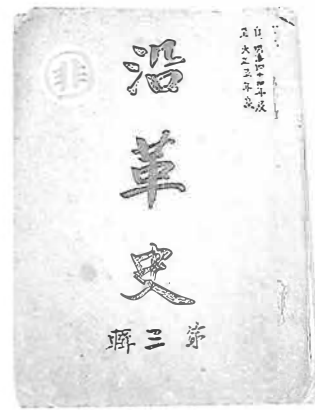 自明治四十四年度
至大正五年度
沿革史
第三輯